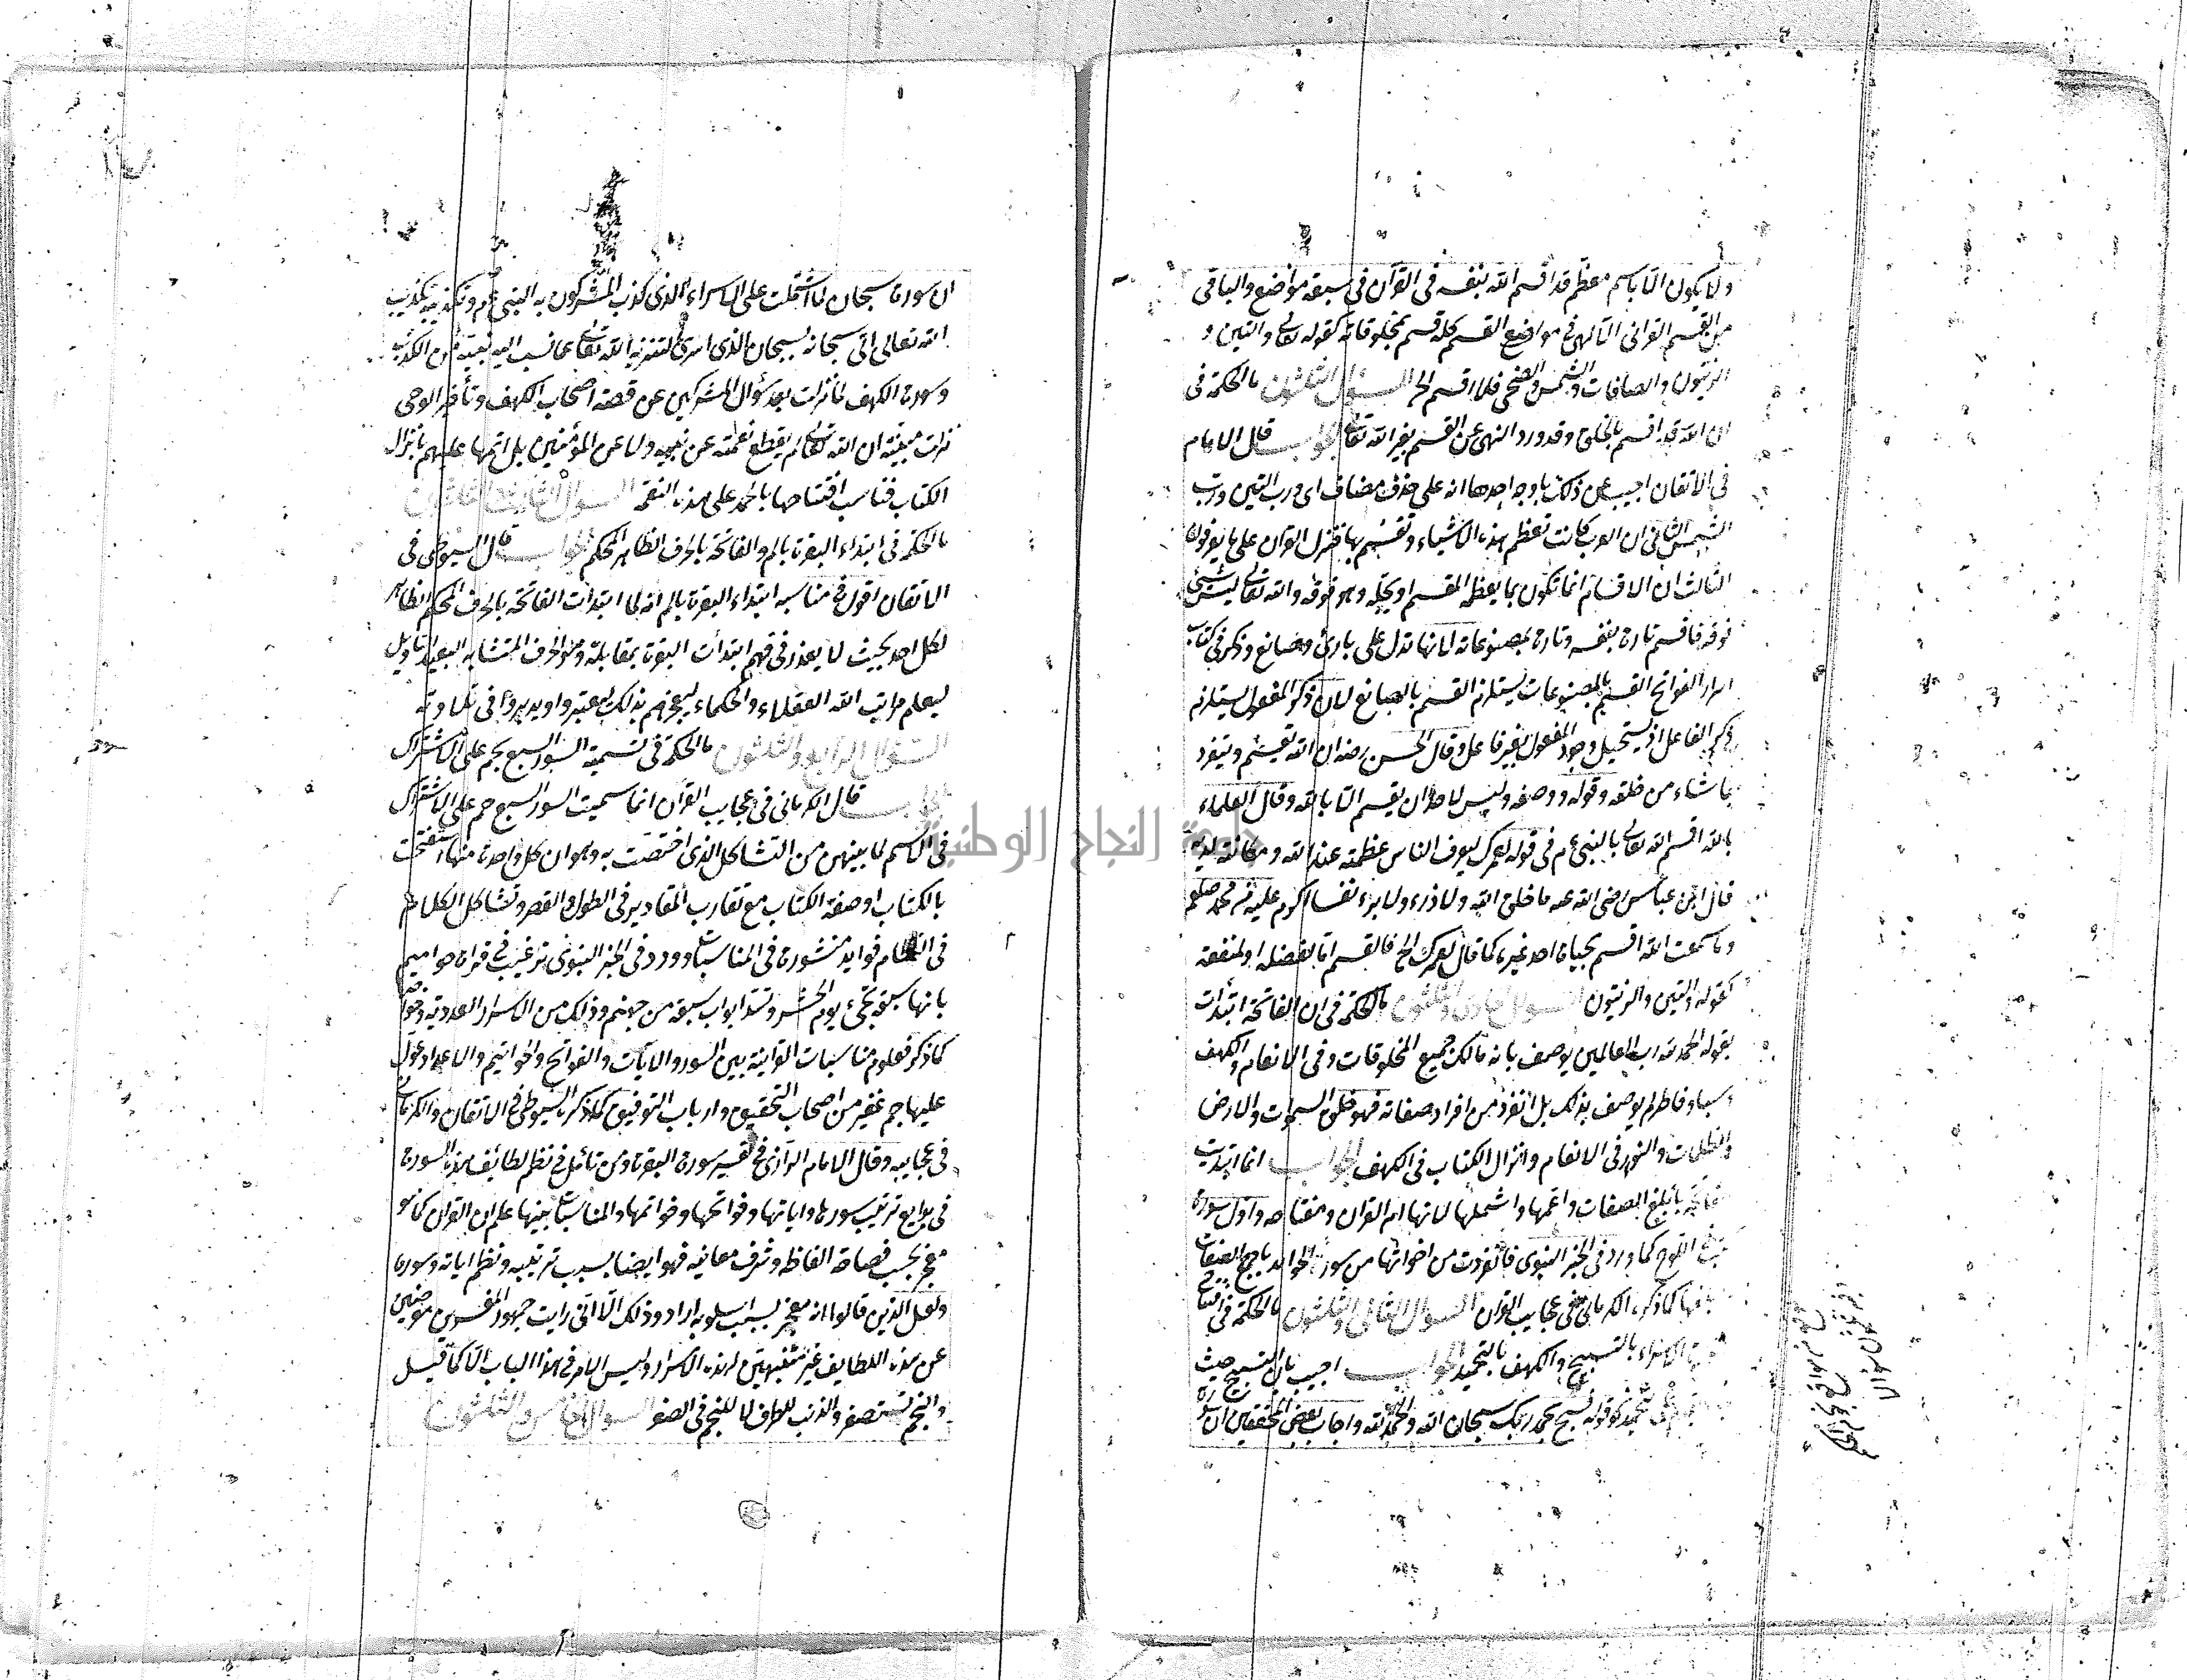 ولا يكون الا باسم معظم قد اقسم الله بنفسه فى القرآن فى سبعة مواضع والباقى
من القسم القرانى الآلهى فى مواضع القسم كله قسم بمخلوقاته كقوله تعالى والتين و
الزيتون والصافات والشمس والضحى فلا اقسم الخ السؤال الثلثون ما الحكمة فى
ان الله قد اقسم بالخلق وقد ورد النهى عن القسم بغير الله تعالى الجواب قال الامام
فى الاتقان اجيب عن ذلك باوجه احدها انه على حذف مضاف اى ورب التين ورب
الشمس الثانى ان العرب كانت تعظم هذه الاشياء وتقسم بها فنزل القرآن على ما يعرفون
الثالث ان الاقسام انما تكون بما يعظمه المقسم او يجله وهو فوقه والله تعالى ليس شئ
فوقه فاقسم تارة بنفسه وتارة بمصنوعاته لانها تدل على بارئ وصانع وذكر فى كتاب
اسرار الفواتح القسم بالمصنوعات يستلزم القسم بالصانع لان ذكر المفعول يستلزم
ذكر الفاعل اذ يستحيل وجود المفعول بغير فاعل وقال الحسن رضه ان الله يقسم
بما شاء من خلقه وقوله ووصفه وليس لاحد ان يقسم الا بالله وقال العلماء
بالله اقسم الله تعالى بالنبى ءم فى قوله لعمرك ليعرف الناس عظمته عند الله ومكانته لديه
قال ابن عباس رضى الله عنه ما خلق الله ولا ذرء ولا برء نفسا اكرم عليه من محمد صلعم
وما سمعت الله اقسم بحياة احد غيره كما قال لعمرك الخ فالقسم اما لفضله او لمنفعة
كقوله والتين والزيتون السؤال الحادى والثلثون ما الحكمة فى ان الفاتحة ابتدأت
بقوله الحمد لله رب العالمين يوصف بانه مالك جميع المخلوقات وفى الانعام والكهف
وسباء وفاطر لم يوصف بذلك بل انفرد من افراد صفاته فهو خلق السموات والارض
والظلمات والنور فى الانعام وانزال الكتاب فى الكهف الجواب انما ابتديت
بابلغ الصفات واعمها واشملها لانها ام القران ومفتاحه واول سورة
كما ورد فى الخبر النبوى فانفردت من اخواتها من سور
كما ذكره الكرمانى فى عجايب القران السؤال الثانى والثلثون ما الحكمة فى افتتاح
الاسراء بالتسبيح والكهف بالتحميد الجواب اجيب بان التسبيح حيث
نحو قوله فسبح بحمد ربك سبحان الله والحمد لله واجاب بعض المحققين ان
ان سورة سبحان لما اشتملت على الاسراء الذى كذب المشركون به النبى ءم وتكذيبه تكذيب
الله تعالى اتى سبحانه بسبحان الذى اسرى لتنزيه الله تعالى عما نسب اليه نبيه من الكذب
وسورة الكهف لما نزلت بعد سؤال المشركين عن قصة اصحاب الكهف وتأخير الوحى
نزلت مبينة ان الله تعالى لم يقطع نعمته عن نبيه ولا عن المؤمنين بل اتمها عليهم بانزال
الكتاب فناسب افتتاحها بالحمد على هذه النعمة السؤال الثالث والثلثون
ما الحكمة فى ابتداء البقرة بالم والفاتحة بالحرف الظاهر المحكم الجواب قال السيوطى فى
الاتقان اقول فى مناسبة ابتداء البقرة بالم انه لما ابتدأت الفاتحة بالحرف المحكم الظاهر
لكل احد بحيث لا يعذر فى فهمه ابتدأت البقرة بمقابله وهو الحرف المتشابه البعيد التأويل
ليعلم مراتب الله العقلاء والحكماء ليعجزهم بذلك ليعتبروا ويدبروا فى تلاوته
السؤال الرابع والثلثون ما الحكمة فى تسمية السور السبع بحم على الاشتراك
الجواب قال الكرمانى فى عجايب القرآن انما سميت السور السبع حم على الاشتراك
فى الاسم لما بينهن من التشاكل الذى اختصت به وهو ان كل واحدة منها استفتحت
بالكتاب او صفة الكتاب مع تقارب المقادير فى الطول والقصر وتشاكل الكلام
فى النظام فوايد منشورة فى المناسبات وورد فى الخبر النبوى ترغيب فى قراءة حواميم
بانها سبعة تجئ يوم الحشر وتسد ابواب سبعة من جهنم وذلك من الاسرار العددية
كما ذكر فعلوم مناسبات القرآنية بين السور والايات والفواتح والخواتيم والاعداد عول
عليها جم غفير من اصحاب التحقيق وارباب التوفيق كما ذكره السيوطى فى الاتقان والكرمانى
فى عجايبه وقال الامام الرازى فى تفسير سورة البقرة ومن تأمل فى نظم لطائف هذه السورة
فى بدايع ترتيب سورها واياتها وفواتحها وخواتمها والمناسبات بينها علم ان القران كما هو
معجز بحسب فصاحة الفاظه وشرف معانيه فهو ايضا بسبب ترتيبه ونظم اياته وسوره
ولعل الذين قالوا انه معجز بسبب اسلوبه ارادوا ذلك الا انى رايت جمهور المفسرين معرضين
عن هذه اللطايف غير متنبهين لهذه الاسرار وليس الامر فى هذا الباب الا كما قيل
والنجم تستصغر والذنب للطرف لا للنجم فى الصغر السؤال الخامس والثلثون
جامعة النجاح الوطنية